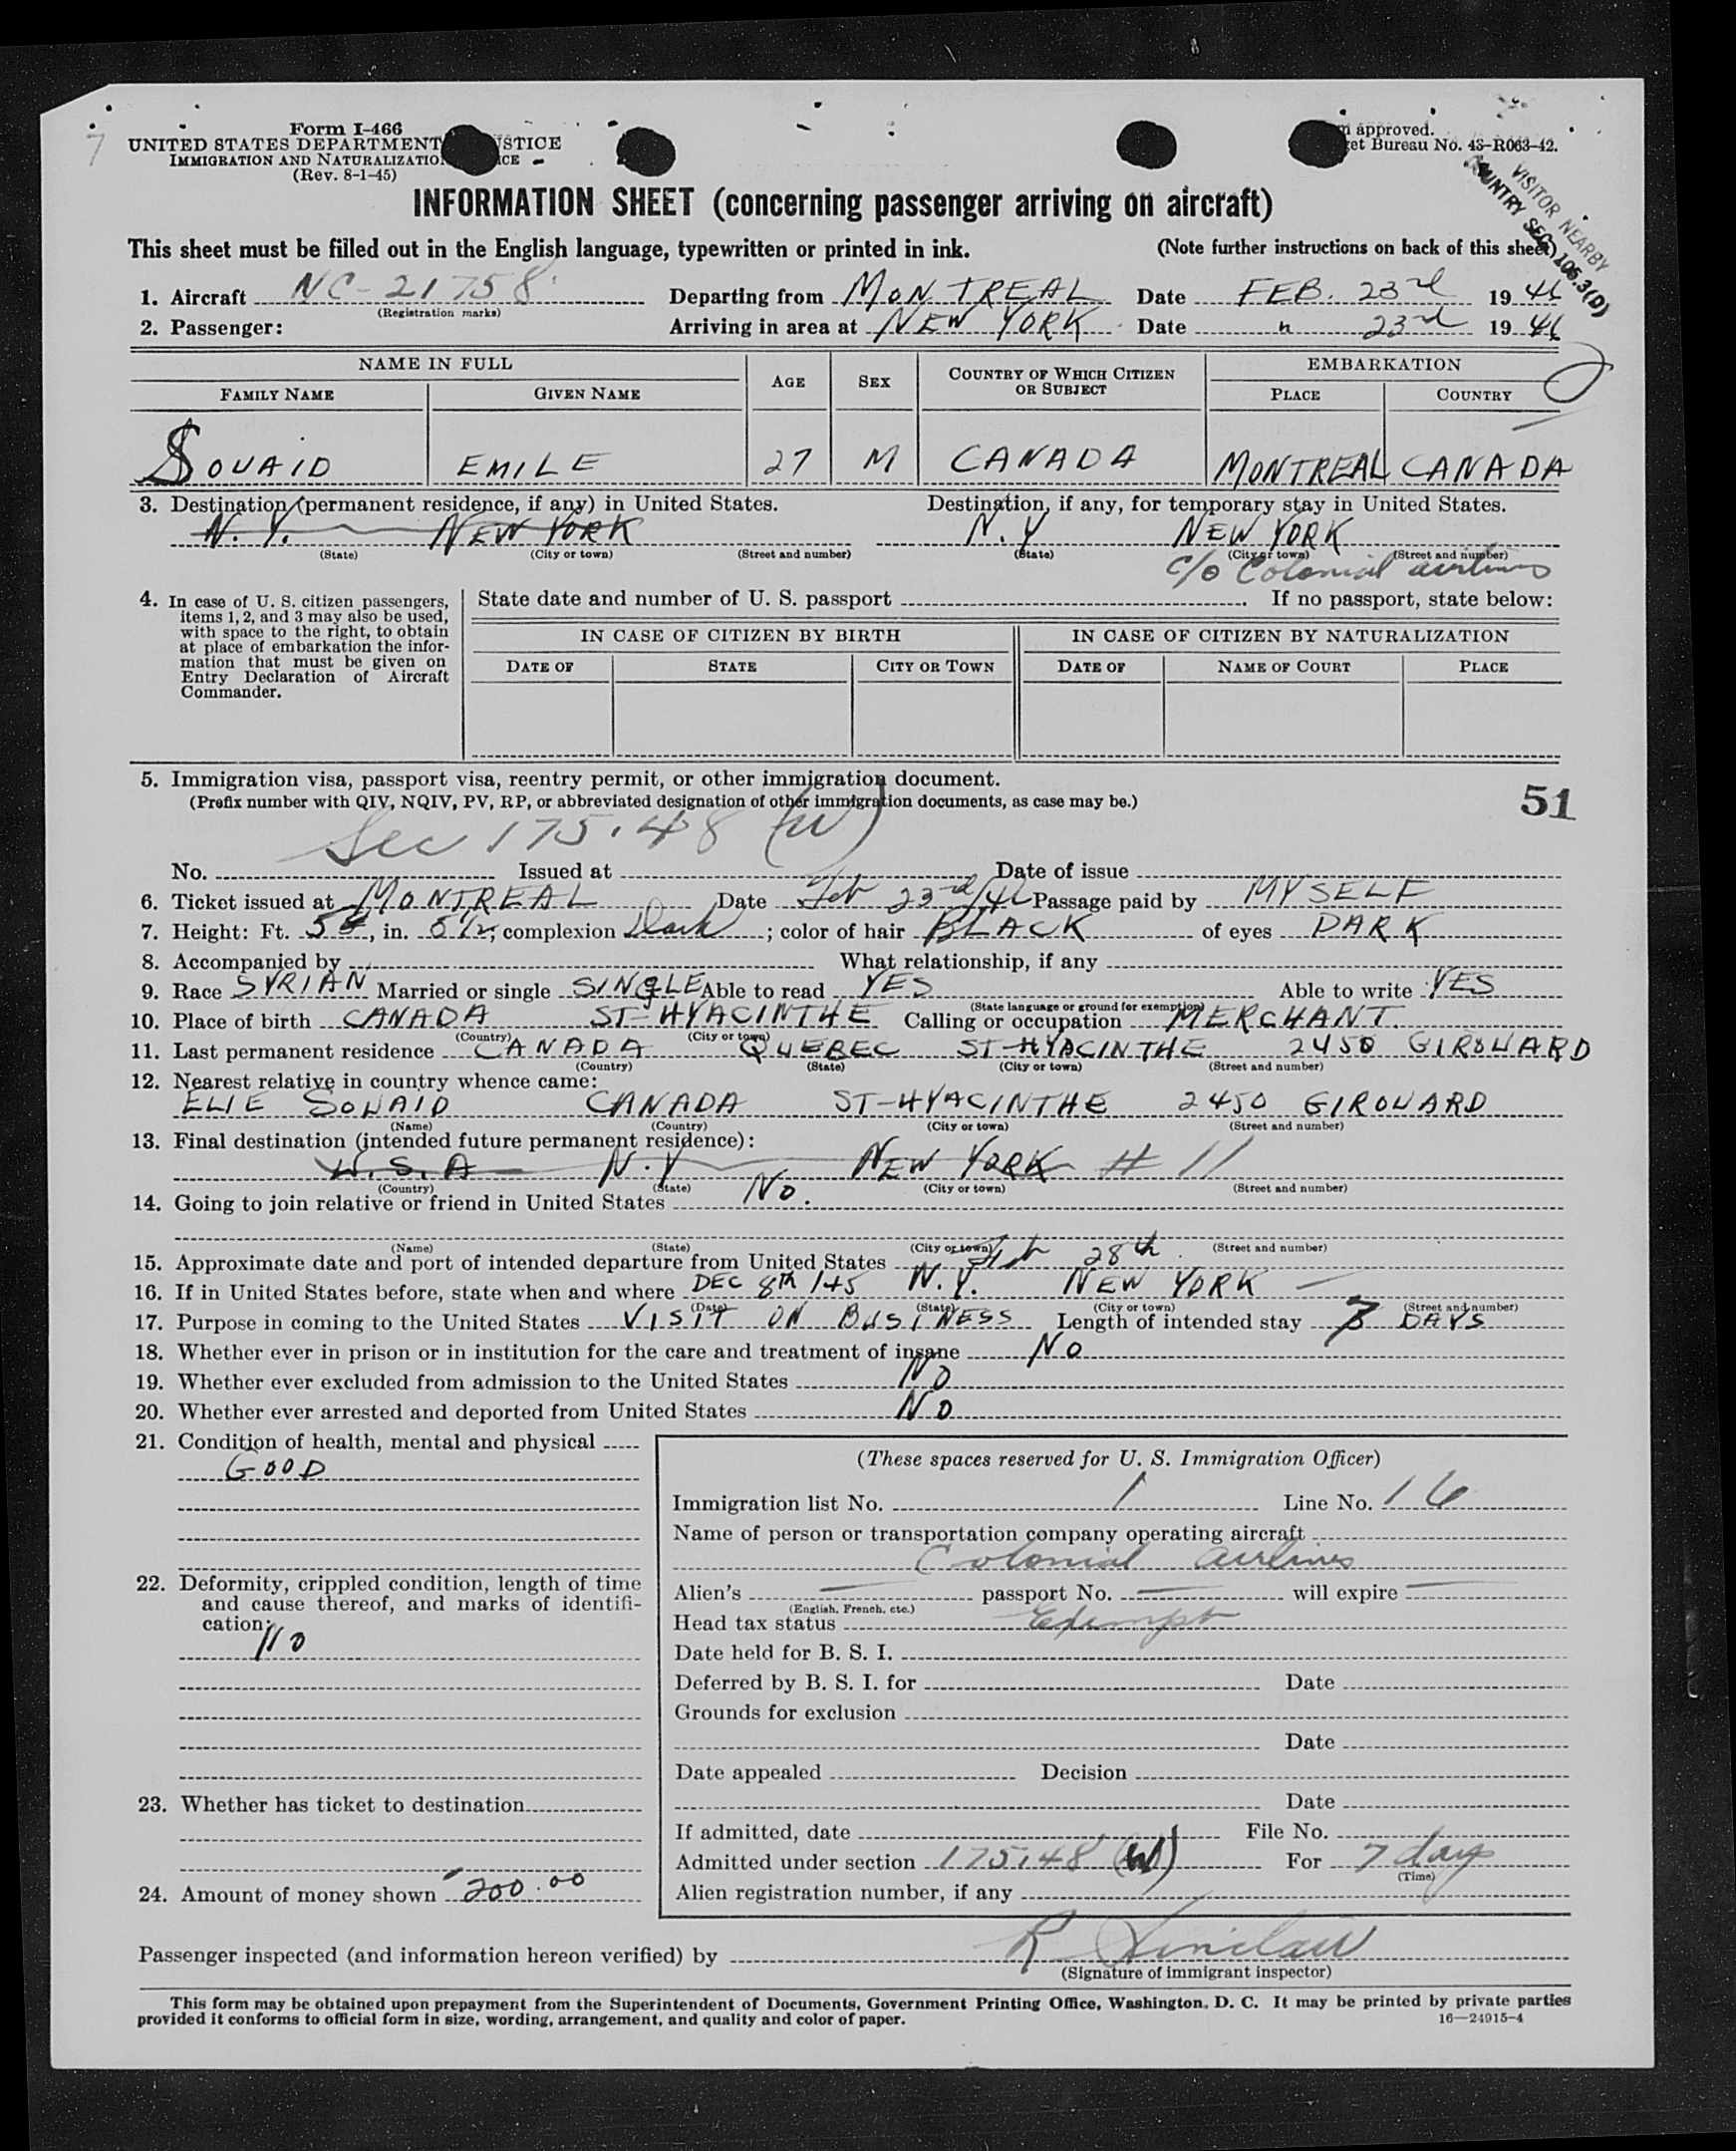 7
Form I-466
UNITED STATES DEPARTMENT STICE
IMMIGRATION AND NATURALIZATIO ICE
(Rev. 8-1-45)
approved.
et Bureau No. 43-R063-42.
VISITOR NEARBY
UNTRY SEC 105.3(D)
INFORMATION SHEET (concerning passenger arriving on aircraft)
This sheet must be filled out in the English language, typewritten or printed in ink. (Note further instructions on back of this sheet)
1. Aircraft NC-21758 Departing from MONTREAL Date FEB. 23rd 1946
(Registration marks)
2. Passenger: Arriving in area at NEW YORK Date " 23rd 1946
NAME IN FULL AGE SEX COUNTRY OF WHICH CITIZEN OR SUBJECT EMBARKATION
FAMILY NAME GIVEN NAME PLACE COUNTRY
SOUAID EMILE 27 M CANADA MONTREAL CANADA
3. Destination (permanent residence, if any) in United States. Destination, if any, for temporary stay in United States.
N.Y. NEW YORK N.Y NEW YORK
(State) (City or town) (Street and number) (State) (City or town) (Street and number)
c/o Colonial airlines
4. In case of U. S. citizen passengers, items 1, 2, and 3 may also be used, with space to the right, to obtain at place of embarkation the information that must be given on Entry Declaration of Aircraft Commander.
State date and number of U. S. passport . If no passport, state below:
IN CASE OF CITIZEN BY BIRTH IN CASE OF CITIZEN BY NATURALIZATION
DATE OF STATE CITY OR TOWN DATE OF NAME OF COURT PLACE
5. Immigration visa, passport visa, reentry permit, or other immigration document.
(Prefix number with QIV, NQIV, PV, RP, or abbreviated designation of other immigration documents, as case may be.)
51
Sec 175.48 (W)
No. Issued at Date of issue
6. Ticket issued at MONTREAL Date Feb 23rd/46 Passage paid by MYSELF
7. Height: Ft. 5, in. 5 1/2; complexion Dark; color of hair BLACK of eyes DARK
8. Accompanied by What relationship, if any
9. Race SYRIAN Married or single SINGLE Able to read YES Able to write YES
(State language or ground for exemption)
10. Place of birth CANADA ST-HYACINTHE Calling or occupation MERCHANT.
(Country) (City or town)
11. Last permanent residence CANADA QUEBEC ST-HYACINTHE 2450 GIROUARD
(Country) (State) (City or town) (Street and number)
12. Nearest relative in country whence came:
ELIE SOUAID CANADA ST-HYACINTHE 2450 GIROUARD
(Name) (Country) (City or town) (Street and number)
13. Final destination (intended future permanent residence):
U.S.A N.Y NEW YORK # 11
(Country) (State) (City or town) (Street and number)
14. Going to join relative or friend in United States No.
(Name) (State) (City or town) (Street and number)
15. Approximate date and port of intended departure from United States Feb 28th.
16. If in United States before, state when and where DEC 8th 145 N.Y. NEW YORK
(Date) (State) (City or town) (Street and number)
17. Purpose in coming to the United States VISIT ON BUSINESS Length of intended stay 7 DAYS
18. Whether ever in prison or in institution for the care and treatment of insane NO
19. Whether ever excluded from admission to the United States NO
20. Whether ever arrested and deported from United States NO
21. Condition of health, mental and physical
GOOD
22. Deformity, crippled condition, length of time and cause thereof, and marks of identification:
NO
23. Whether has ticket to destination
24. Amount of money shown 200.00
(These spaces reserved for U. S. Immigration Officer)
Immigration list No. 1 Line No. 16
Name of person or transportation company operating aircraft
Colonial airlines
Alien's — passport No. — will expire —
(English, French, etc.)
Head tax status Exempt
Date held for B. S. I.
Deferred by B. S. I. for Date
Grounds for exclusion
Date
Date appealed Decision
Date
If admitted, date File No.
Admitted under section 175.48 (W) For 7 days
(Time)
Alien registration number, if any
Passenger inspected (and information hereon verified) by R Sinclair
(Signature of immigrant inspector)
This form may be obtained upon prepayment from the Superintendent of Documents, Government Printing Office, Washington, D. C. It may be printed by private parties
provided it conforms to official form in size, wording, arrangement, and quality and color of paper. 16—24915-4